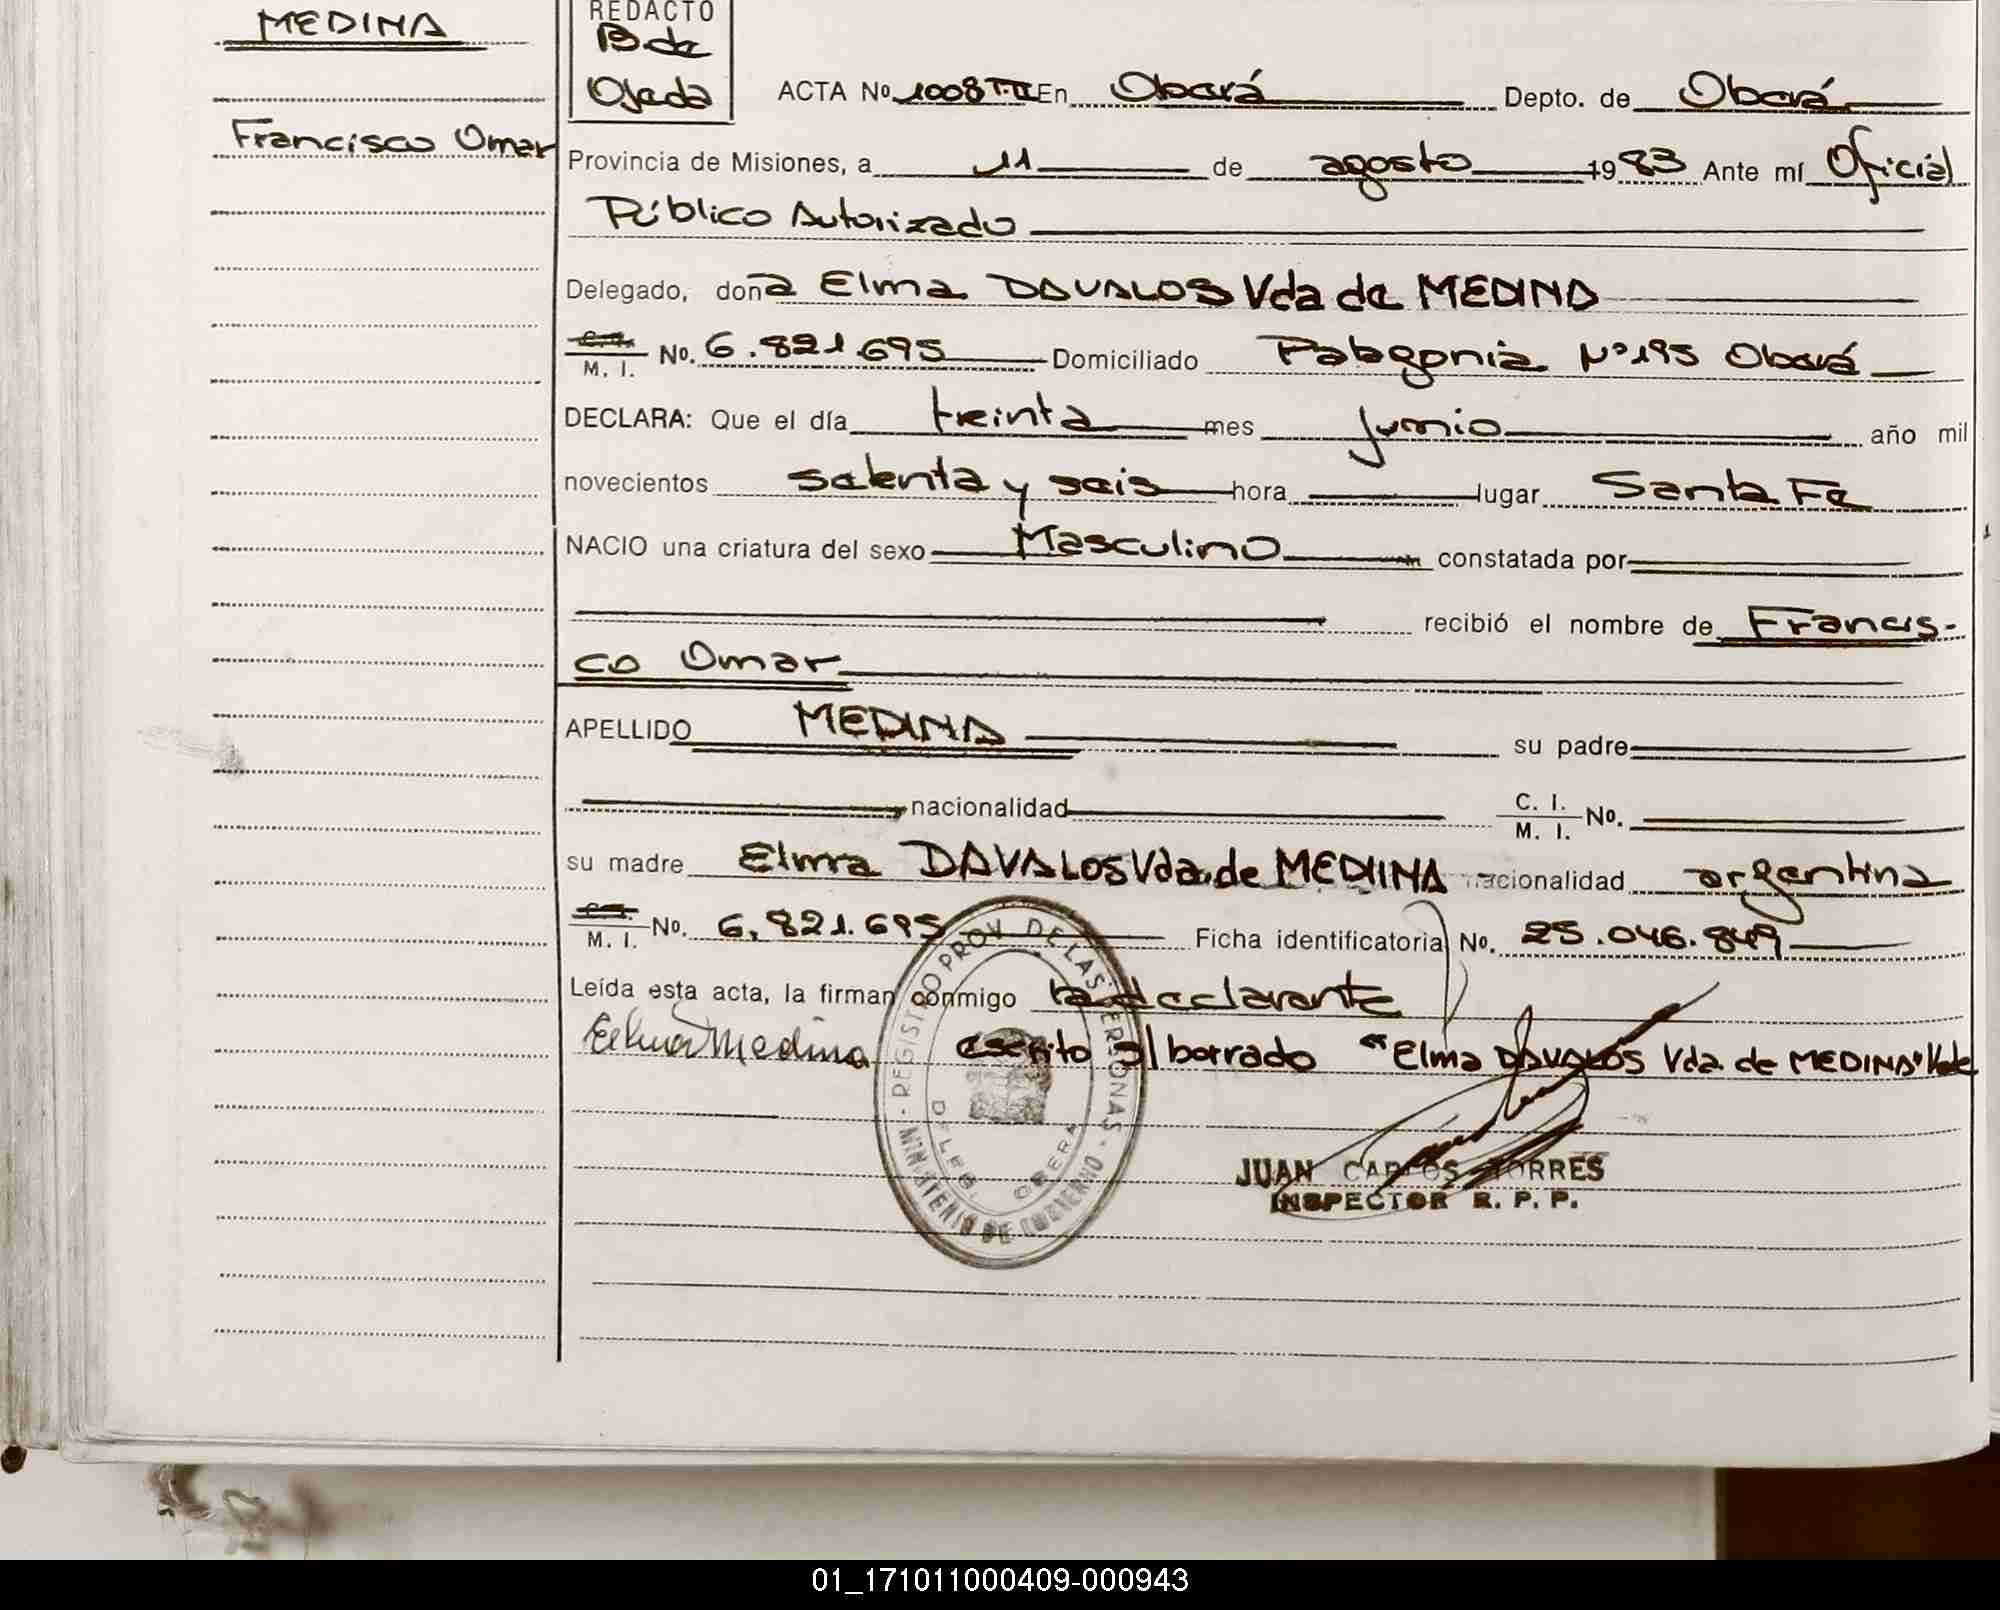 MEDINA
Francisco Omar
REDACTO
B. de
Ojeda
ACTA No 1008 T-II En Oberá Depto. de Oberá
Provincia de Misiones, a 11 de agosto 1983 Ante mí Oficial
Público Autorizado
Delegado, doña Elma DAVALOS Vda de MEDINA
C.I. M. I. No. 6.821.695 Domiciliado Patagonia Nº 195 Oberá
DECLARA: Que el día treinta mes junio año mil
novecientos setenta y seis hora lugar Santa Fe
NACIO una criatura del sexo Masculino constatada por
recibió el nombre de Francis-
co Omar
APELLIDO MEDINA su padre
nacionalidad C. I. M. I. No.
su madre Elma DAVALOS Vda. de MEDINA nacionalidad argentina
C.I. M. I. No. 6.821.695 Ficha identificatoria No. 25.046.849
Leída esta acta, la firman conmigo la declarante
Medina escrito s/ borrado "Elma DAVALOS Vda. de MEDINA" Vale
REGISTRO PROV. DE LAS PERSONAS - MINISTERIO DE GOBIERNO -
DELEG. OBERA
JUAN CARLOS TORRES
INSPECTOR R. P. P.
01_171011000409-000943